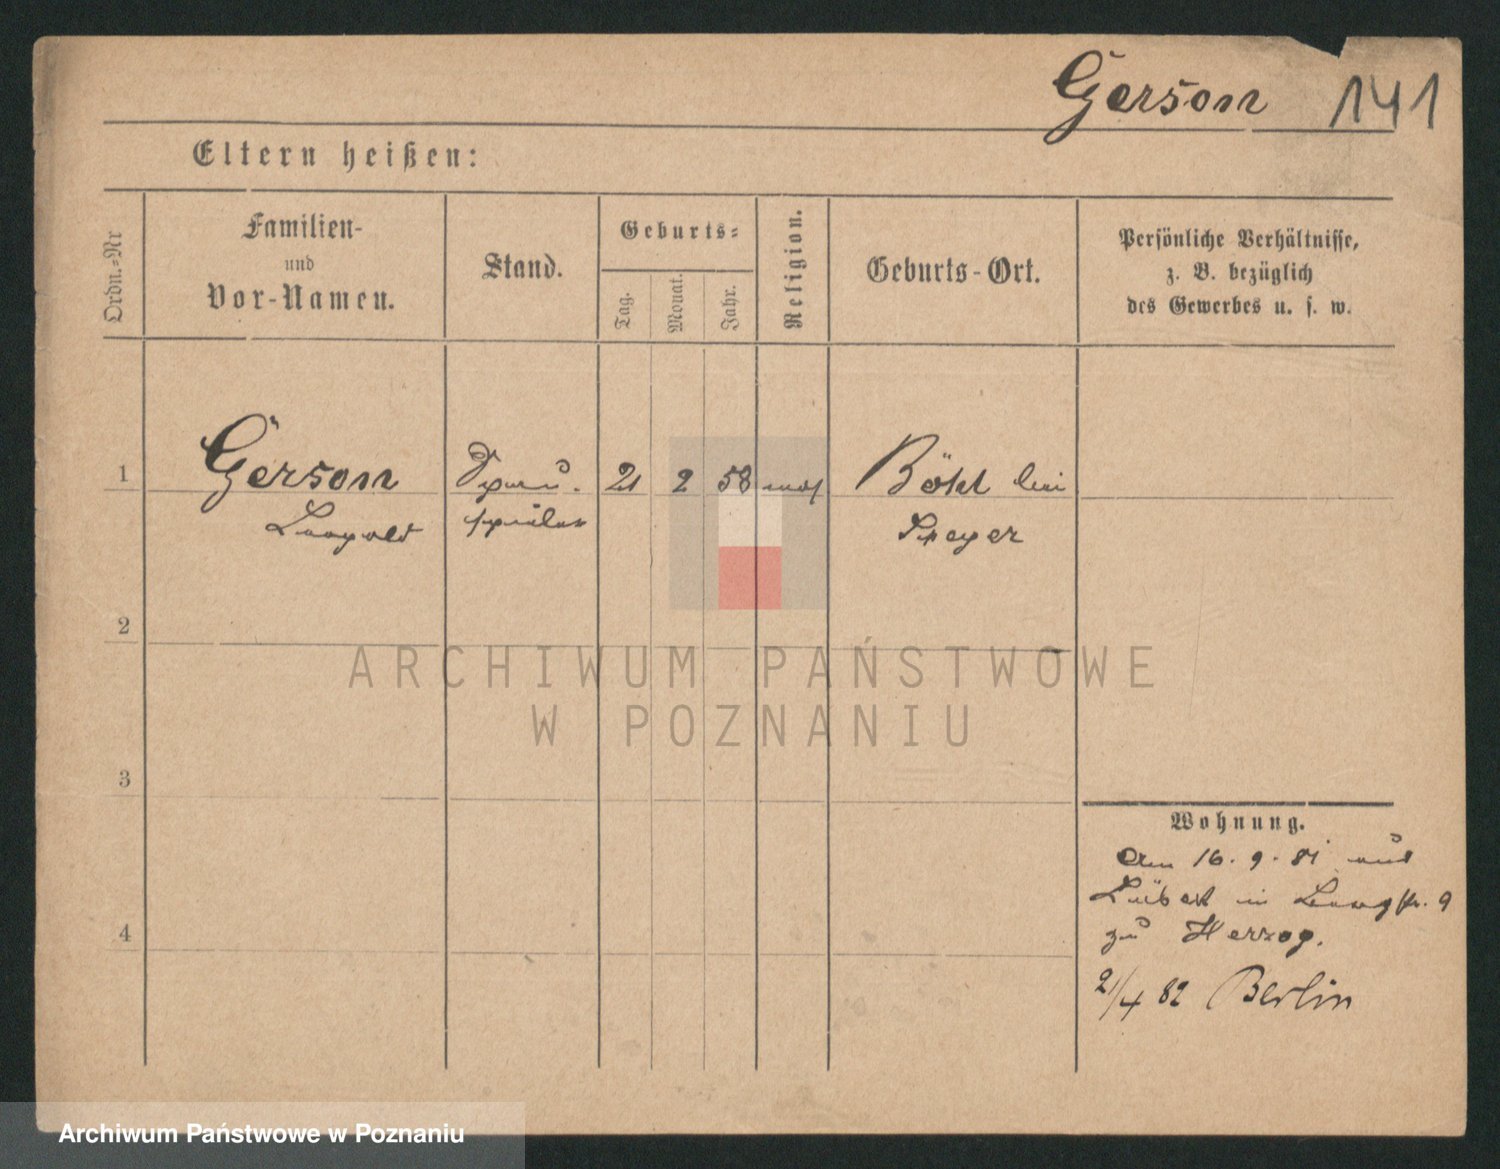 Gerson 141
Eltern heißen:
Ordn.=Nr
Familien-
und
Vor-Namen.
Stand.
Geburts=
Tag.
Monat.
Jahr.
Religion.
Geburts-Ort.
Persönliche Verhältnisse,
z. B. bezüglich
des Gewerbes u. s. w.
1 Gerson 21 2 58 mos Böhl bei
Leopold Speyer
2
3
4
Wohnung.
Am 16. 9. 81 aus
Lübeck in Langstr. 9
zu Herzog.
21/4 82 Berlin
ARCHIWUM PAŃSTWOWE
W POZNANIU
Archiwum Państwowe w Poznaniu